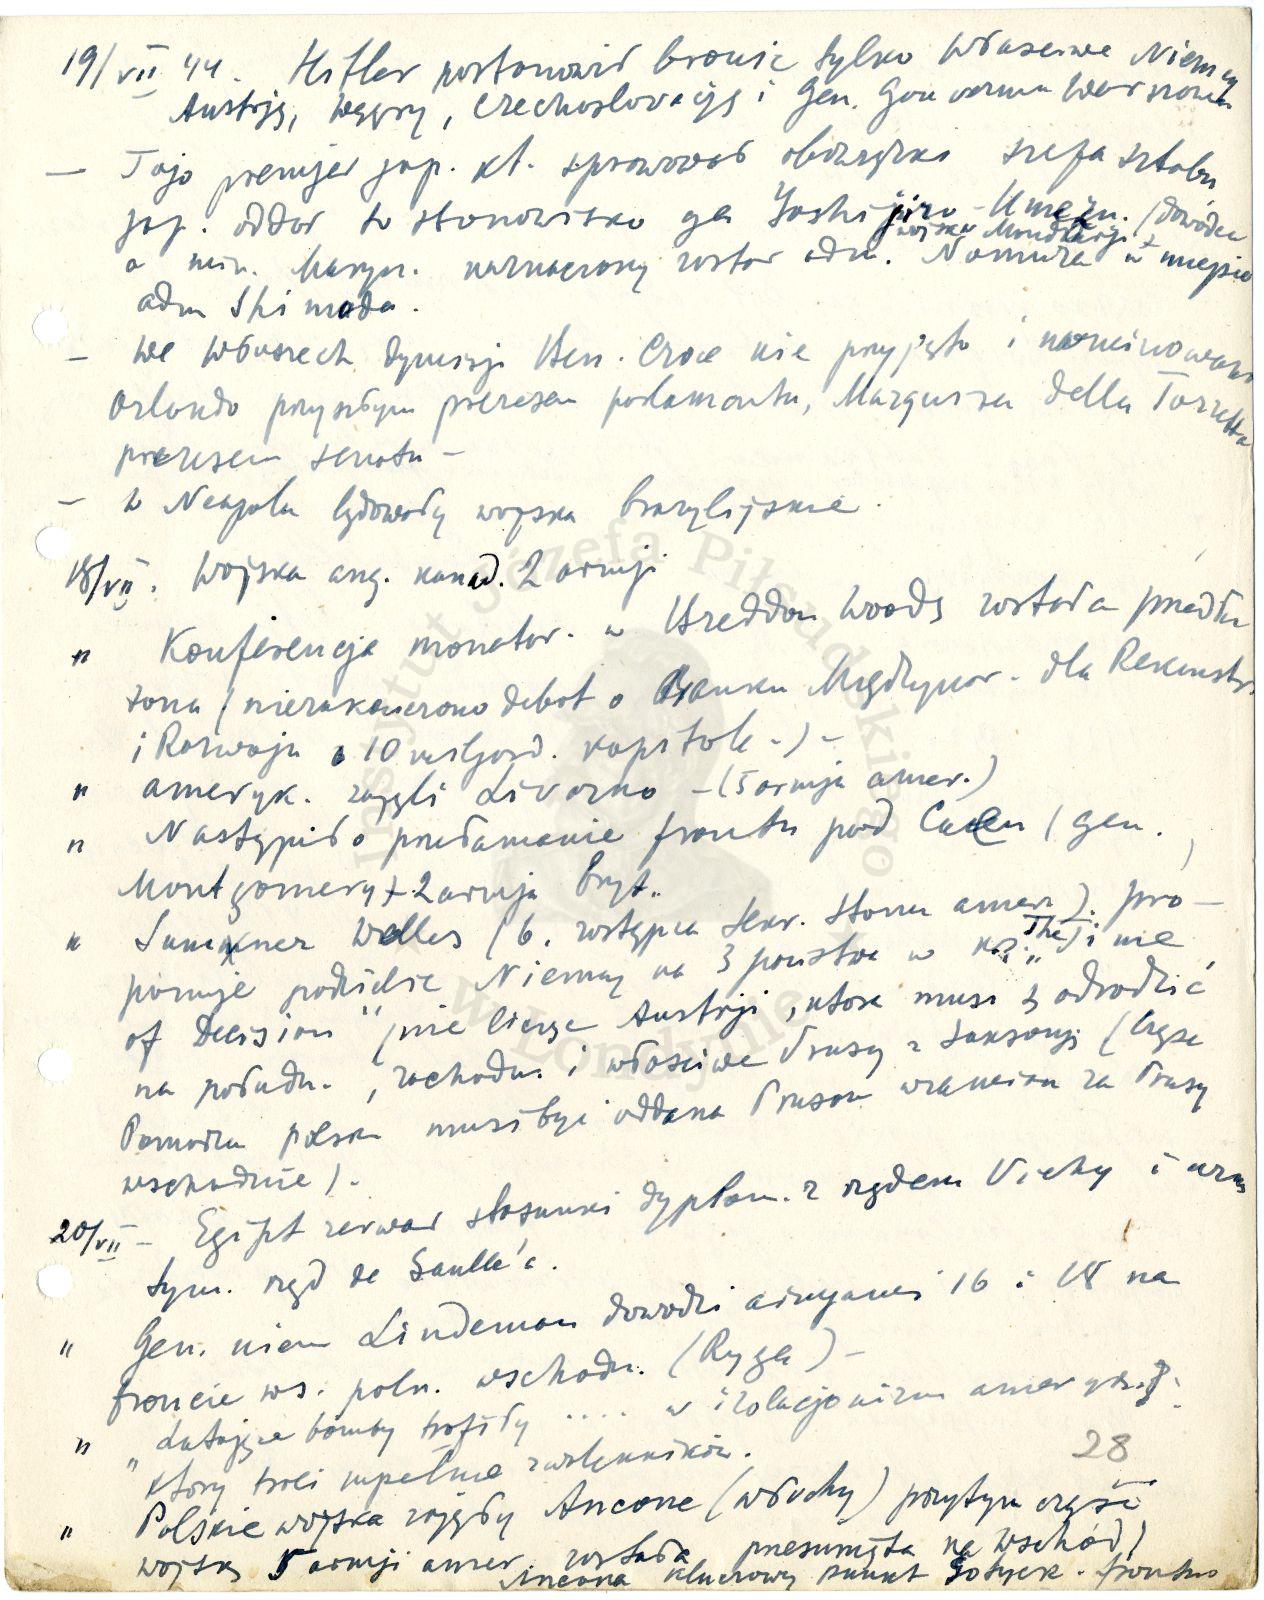 19/VII 44. Hitler postanowił bronić tylko właściwe Niemcy
Austrję, Węgry, Czechosłovację i Gen. Gouverma Warszawa
— Tojo premjer jap. kt. sprawował obowiązki szefa sztabu
jap. oddał to stanowisko gen Yoshijiro - Umezu. (dowódca
wojska Mandżurji +
a min. Maryn. naznaczony został adm. Nomura w miejsce
adm Shimada.
— We Włoszech dymisji Ben. Croce nie przyjęto i nominowano
Orlando przyszłym prezesem parlamentu, Marquisa della Torretta
prezesem senatu —
— W Neapolu lądowały wojska brazylijskie.
18/VII. Wojska ang. kanad. 2 armji
" Konferencja monetar. w Bretton Woods została przedłu
żona (niezakończono debat o Banku Międzynar. dla Rekonstr.
i Rozwoju o 10 miljard. kapitale -) -
" ameryk. zajęli Livorno — (5 armja amer.)
" Nastąpiło przełamanie frontu pod Caen (gen.
Montgomery) - 2 armja bryt.
" Sumner Welles (b. zastępca sekr. stanu amer.). pro-
ponuje podzielić Niemcy na 3 państwa w ks. "The Time
of Decision" (nie licząc Austrji, która musi się odrodzić
na połudn., zachodn. i właściwe Prusy z Saksonji (część
Pomorza polska musi być oddana Prusom wzamian za Prusy
wschodnie).
20/VII — Egipt zerwał stosunki dyplom. z rządem Vichy i uznał
tym. rząd de Gaulle'a.
" Gen. niem Lindeman dowodzi armjami 16 i 18 na
froncie ws. półn. wschodn. (Ryga) —
" "Latające bomby trafiły .... w izolacjonizm ameryk.
który traci zupełnie zwolenników.
" Polskie wojska zajęły Ancone (włochy) przytym część
wojsk 5 armji amer. została przesunięta na wschód)
Ancona kluczowy punkt Gotyck. frontu
28
Instytut Józefa Piłsudskiego
w Londynie